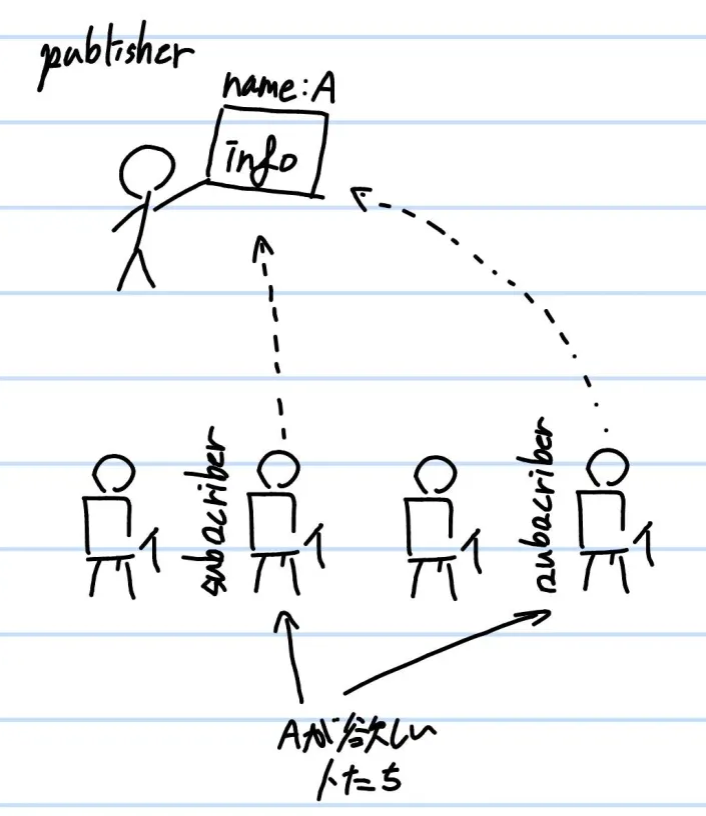 publisher
name:A
info
subscriber
subscriber
Aが欲しい
人たち